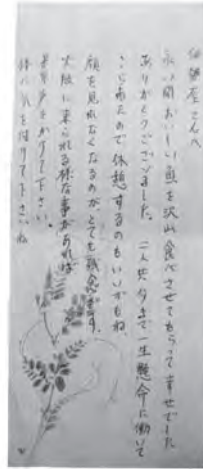 伊勢屋さんへ
永い間おいしい魚を沢山食べさせてもらって幸せでした
ありがとうございました。二人共今まで一生懸命に働いて
こられたので休憩するのもいいかもね
顔を見れなくなるのが、とても残念です。
大阪に来られる様な事があれば
是非声をかけて下さい。
体に気を付けて下さいね